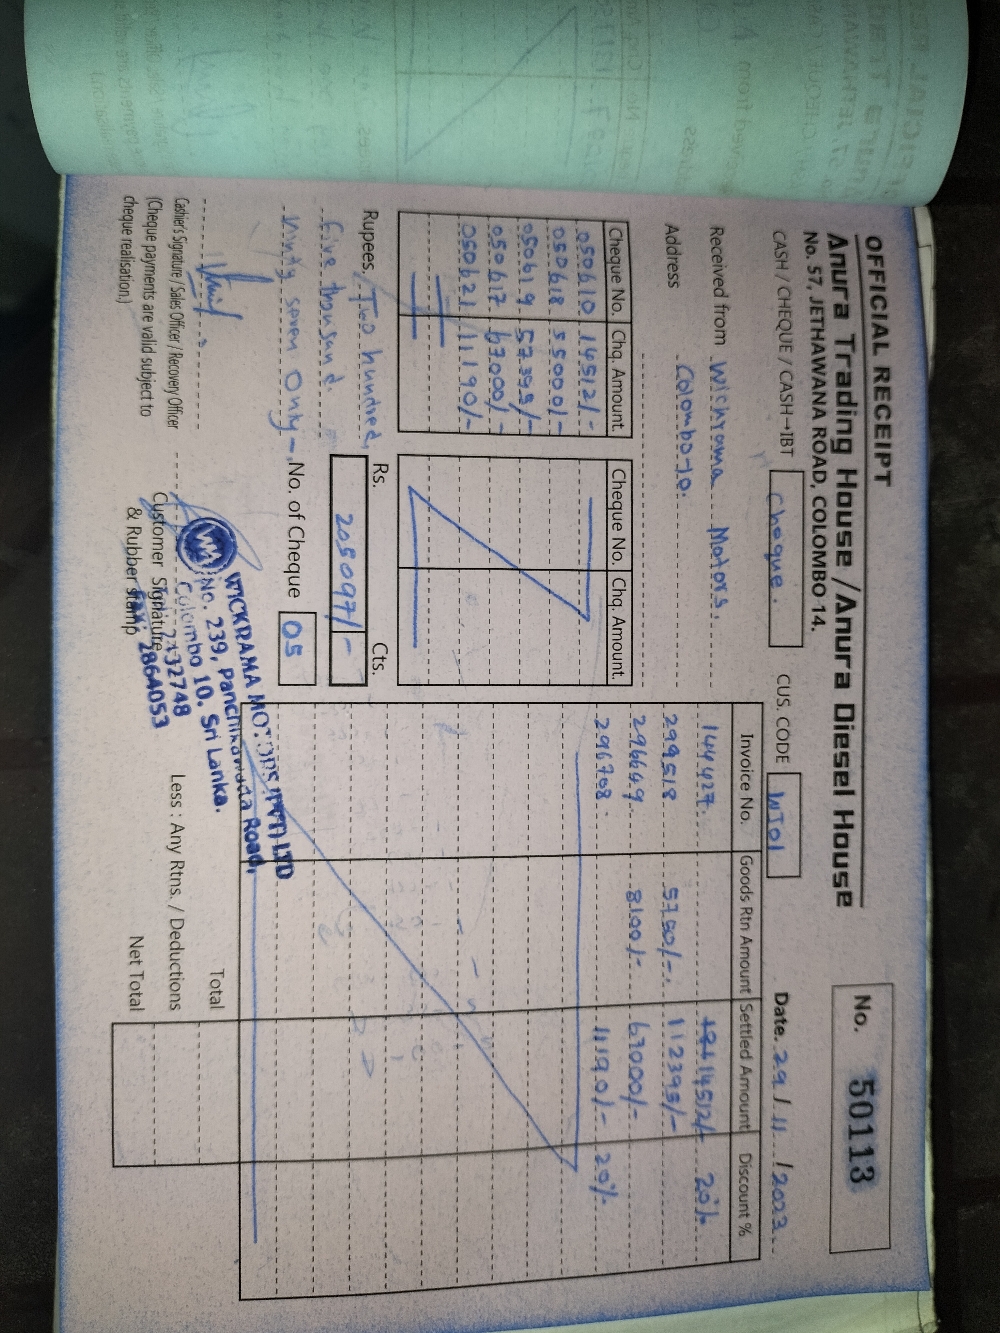 OFFICIAL RECEIPT
Anura Trading House / Anura Diesel House
No. 57, JETHAWANA ROAD, COLOMBO-14.
No. 50113
CASH / CHEQUE / CASH→IBT Cheque. CUS. CODE WJ01 Date. 29 / 11 / 2023
Received from Wickrama Motors.
Address Colombo-10.
Cheque No. Chq. Amount. Cheque No. Chq. Amount.
050610 14512/-
050618 55000/-
050619 57395/-
050617 67000/-
050621 11190/-
Invoice No. Goods Rtn Amount Settled Amount Discount %
144427. 14512/- 20%
299518 5750/- 112395/-
296649 8100/- 67000/-
296708. 11190/- 20%
Rupees, Two hundred, Rs. Cts.
five thousand 205097/-
ninty seven Only No. of Cheque 05
Cashier's Signature / Sales Officer / Recovery Officer
(Cheque payments are valid subject to
cheque realisation.)
Customer Signature
& Rubber stamp
WICKRAMA MOTORS (PVT) LTD
No. 239, Panchikawada Road,
Colombo 10. Sri Lanka.
2432748
FAX: 2864053
Total
Less : Any Rtns. / Deductions
Net Total